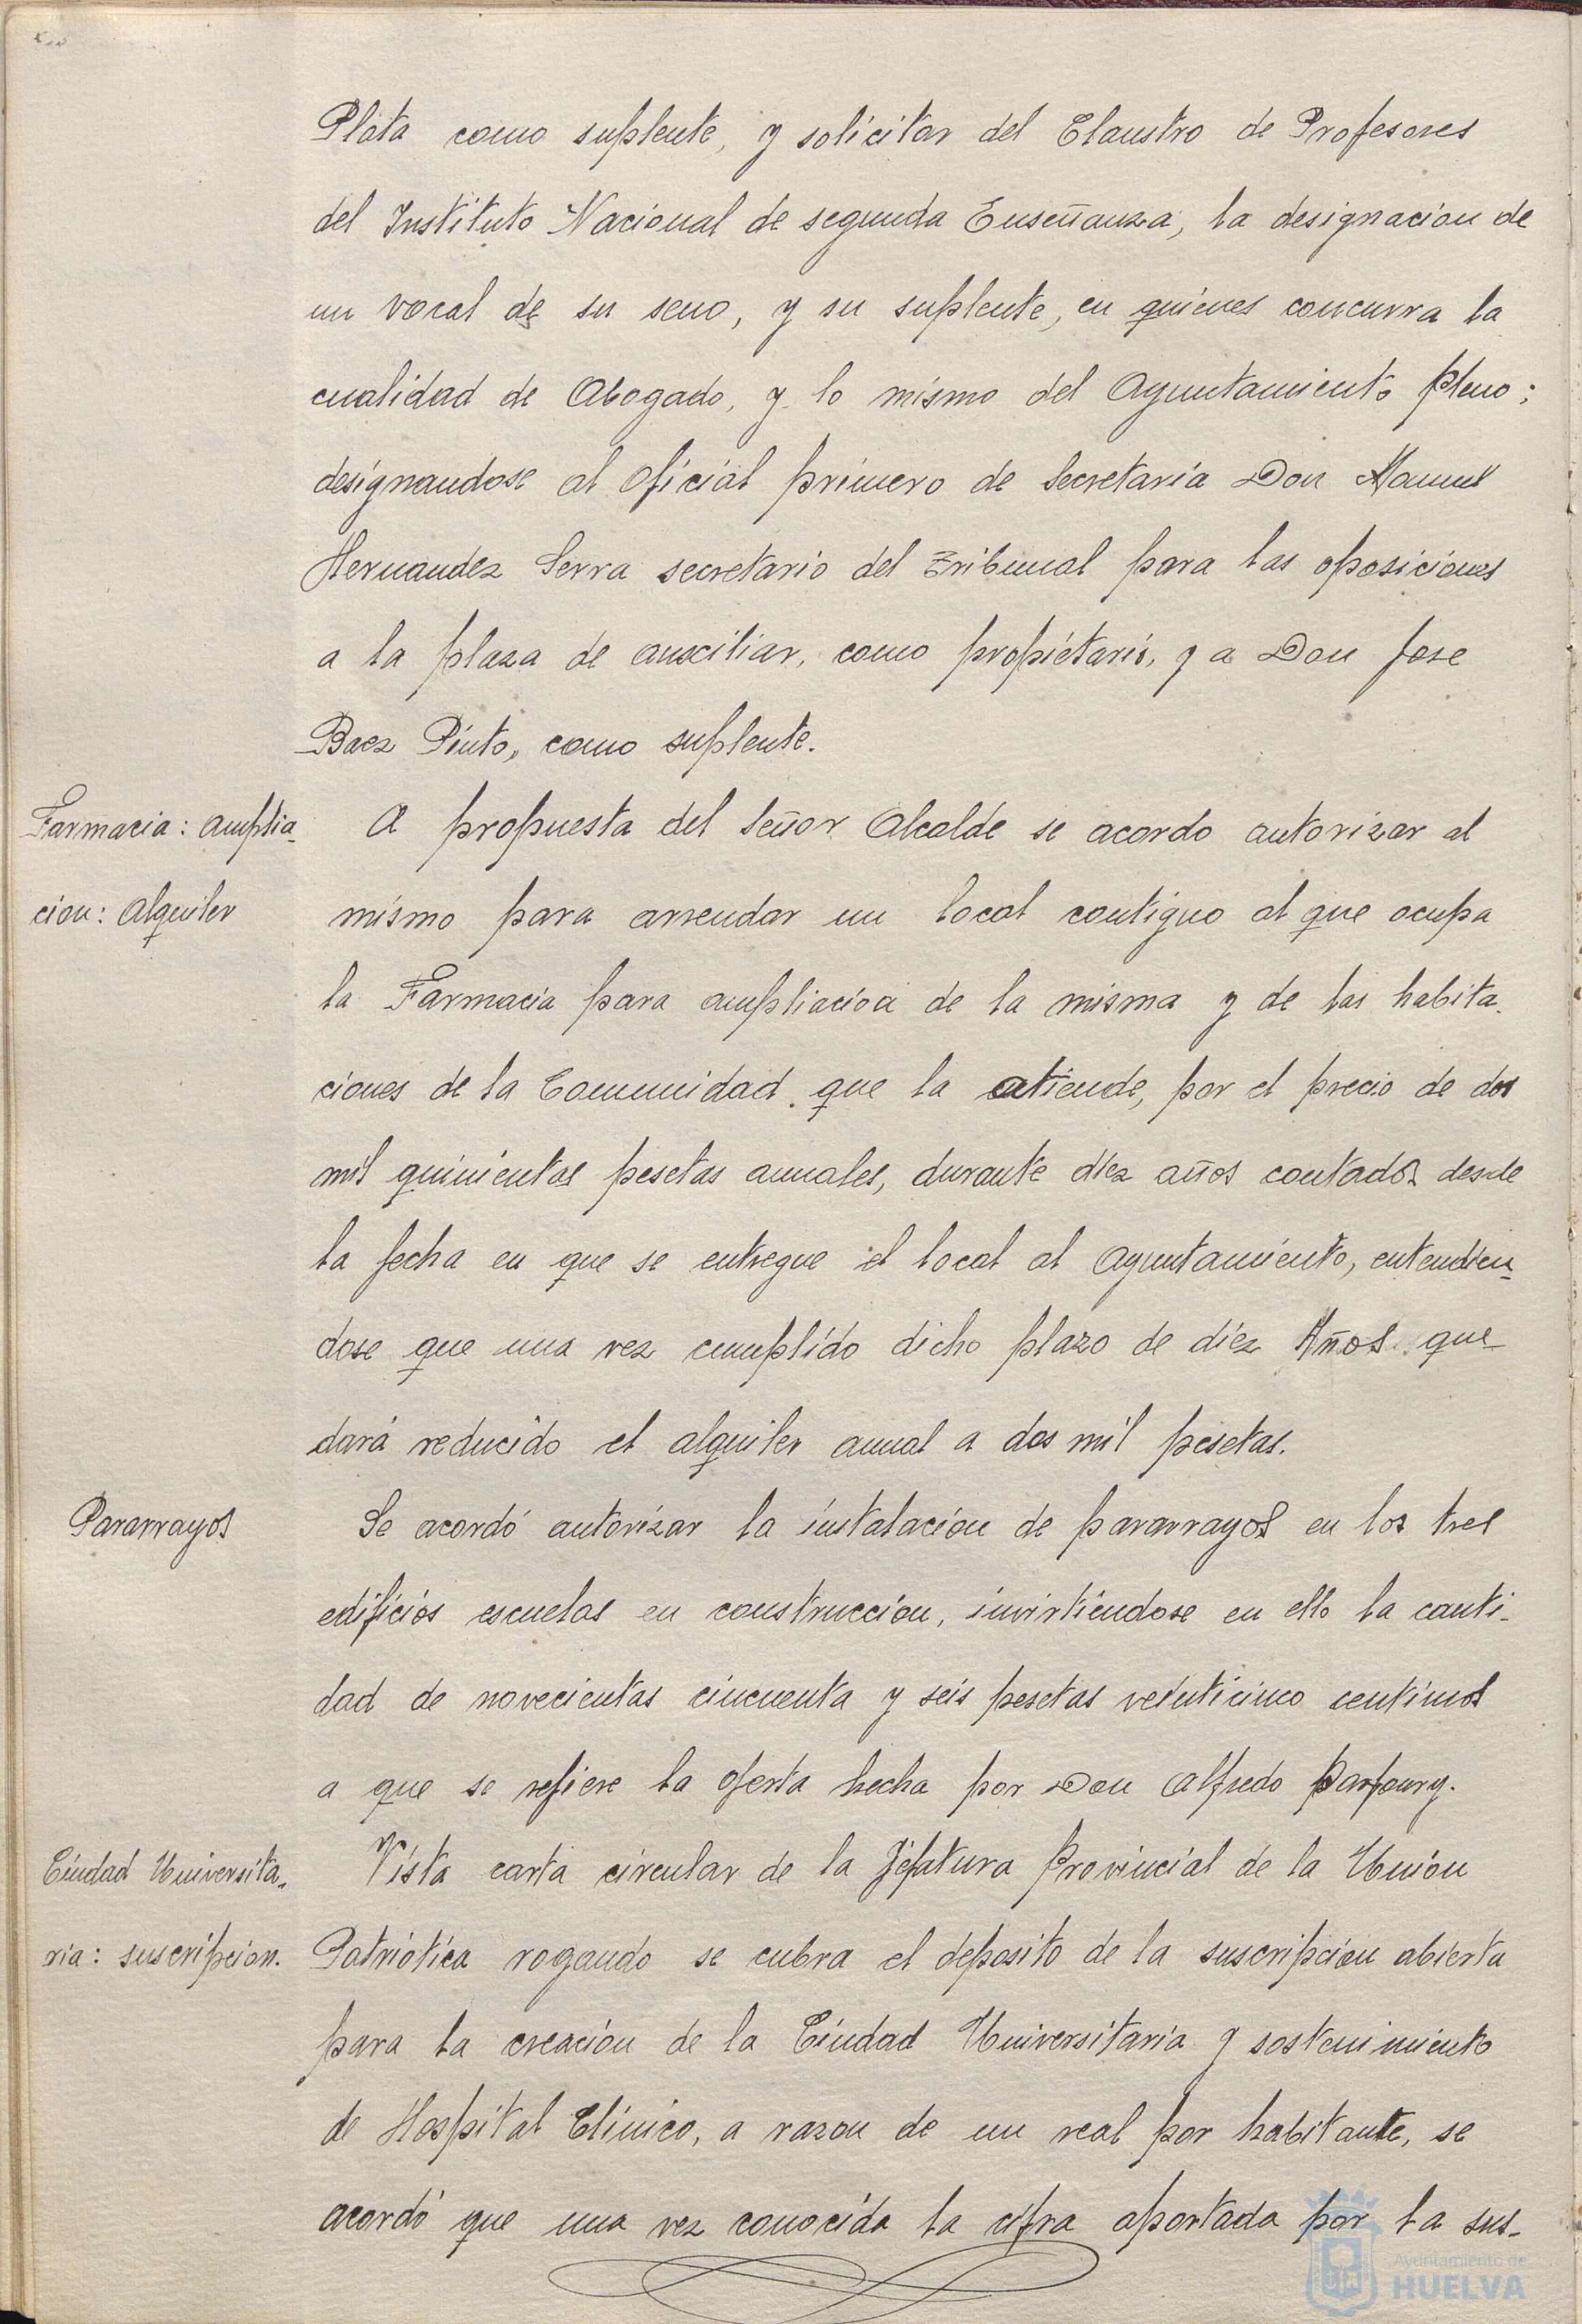 Plata como suplente, y solicitar del Claustro de Profesores
del Instituto Nacional de segunda Enseñanza, la designacion de
un vocal de su seno, y su suplente, en quienes concurra la
cualidad de Abogado, y lo mismo del Ayuntamiento pleno;
designandose al oficial primero de Secretaria Don Manuel
Hernandez Serra secretario del Tribunal para las oposiciones
a la plaza de auxiliar, como propietario, y a Don Jose
Baez Pinto, como suplente.
Farmacia: amplia-
cion: Alquiler
A propuesta del Señor Alcalde se acordo autorizar al
mismo para arrendar un local contiguo al que ocupa
la Farmacia para ampliacion de la misma y de las habita-
ciones de la Comunidad que la atiende, por el precio de dos
mil quinientas pesetas anuales, durante diez años contados desde
la fecha en que se entregue el local al Ayuntamiento, entendien-
dose que una vez cumplido dicho plazo de diez Años que-
dará reducido el alquiler anual a dos mil pesetas.
Pararrayos
Se acordó autorizar la instalacion de pararrayos en los tres
edificios escuelas en construccion, invirtiendose en ello la canti-
dad de novecientas cincuenta y seis pesetas veinticinco centimos
a que se refiere la oferta hecha por Don Alfredo
Ciudad Universita-
ria: suscripcion.
Vista carta circular de la Jefatura Provincial de la Union
Patriótica rogando se cubra el deposito de la suscripcion abierta
para la creacion de la Ciudad Universitaria y sostenimiento
de Hospital Clinico, a razon de un real por habitante, se
acordó que una vez conocida la cifra aportada por la sus-
Ayuntamiento de
HUELVA